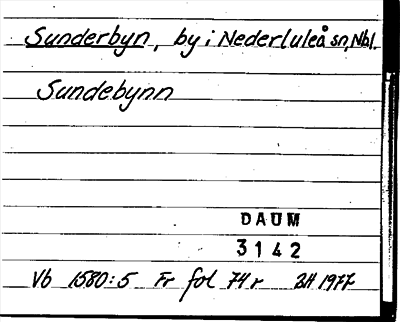 Sunderbyn, by i Nederluleå sn, Nbl.
Sundebynn
DAUM
3142
Vb 1580:5 Fr fol 74 r 2H 1977